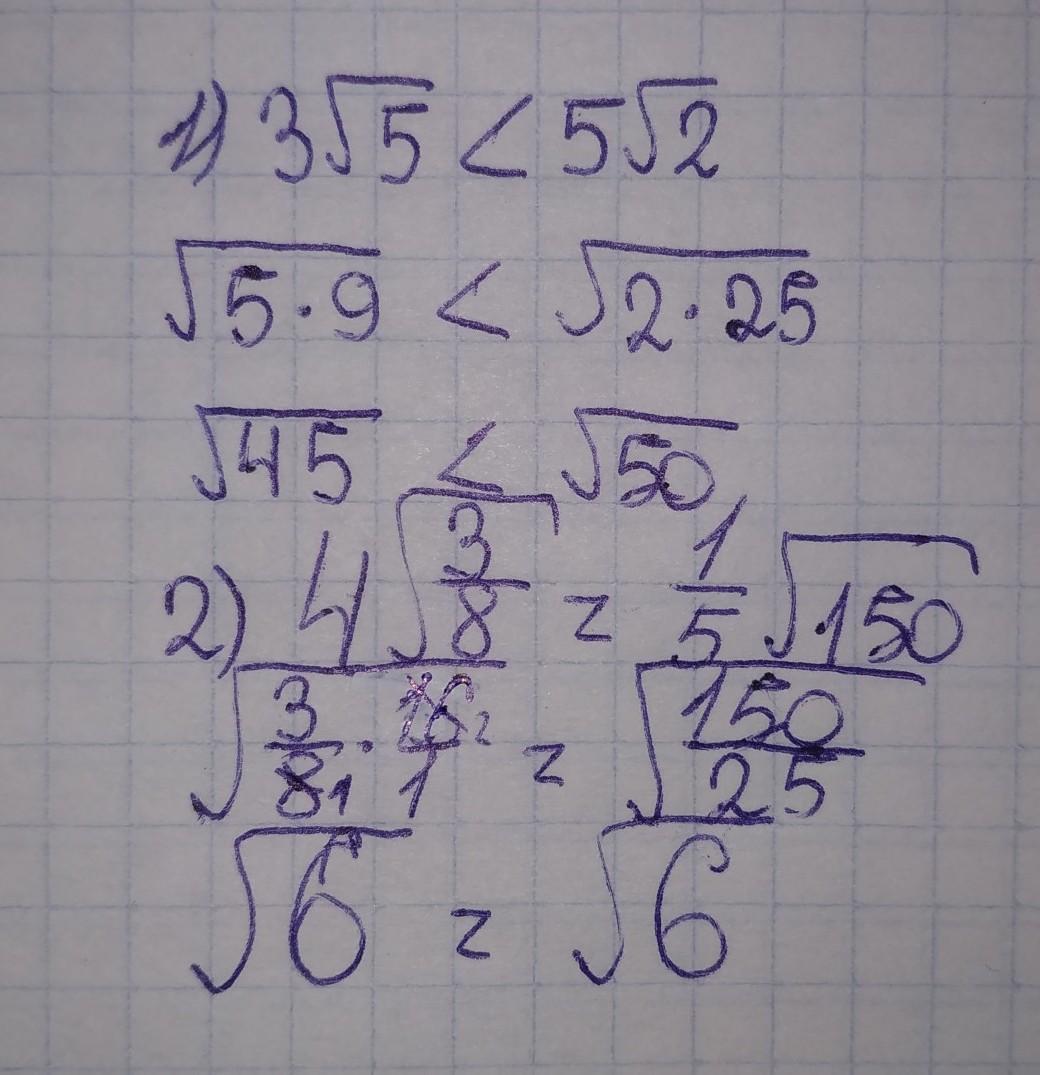 1) 3√5 < 5√2
√5·9 < √2·25
√45 < √50
2) 4√3/8 = 1/5√150
√3/8 1 · 16 2/1 = √150/25
√6 = √6